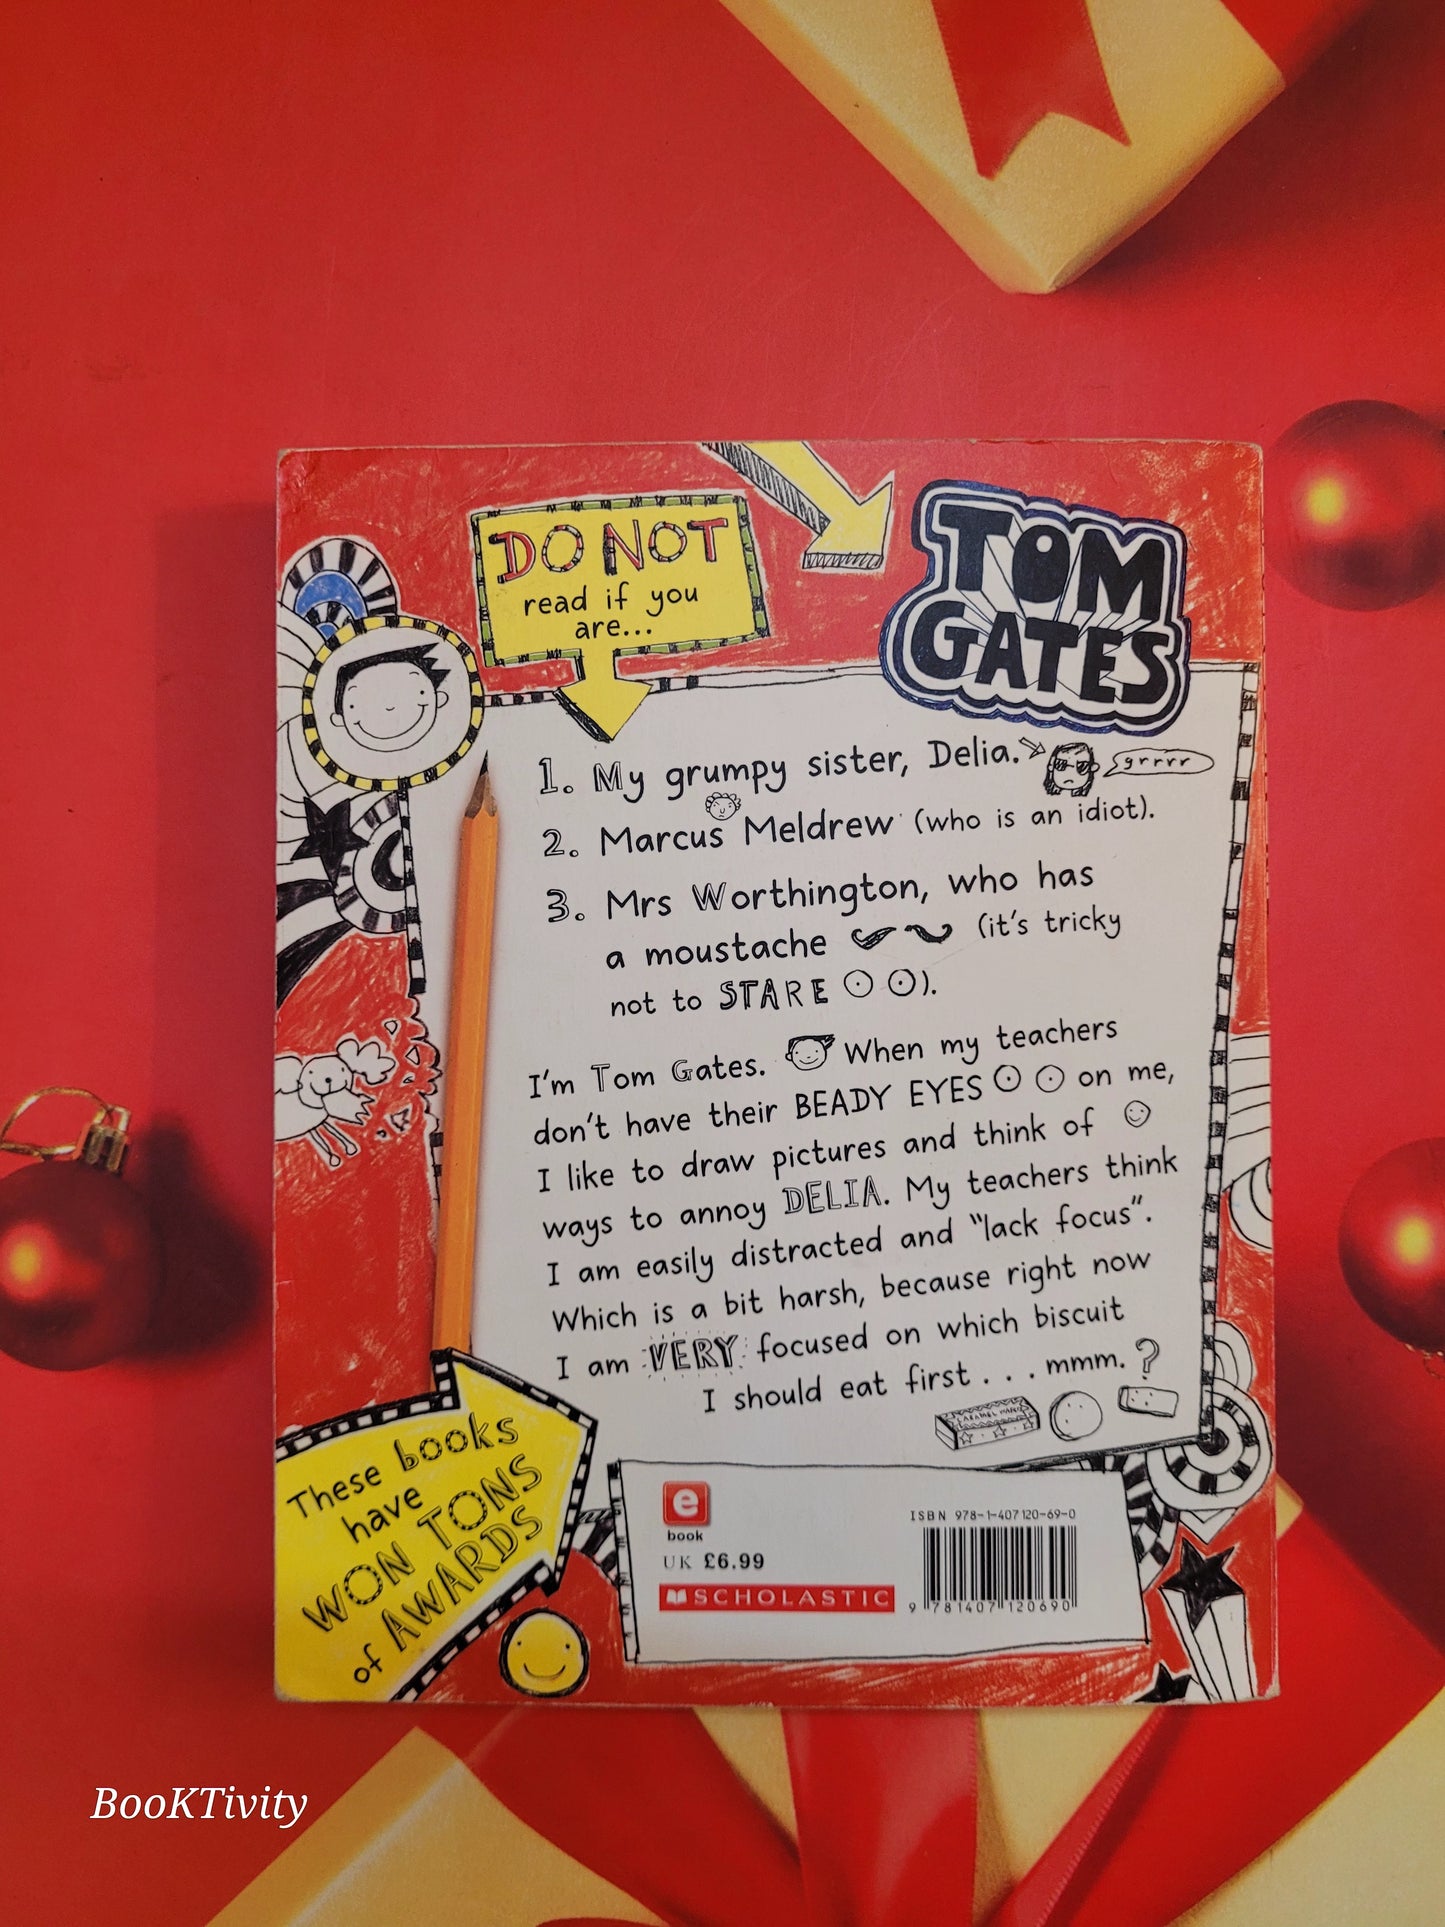 DO NOT
read if you
are...
TOM
GATES
1. My grumpy sister, Delia.
grrrr
2. Marcus Meldrew (who is an idiot).
3. Mrs Worthington, who has
a moustache (it's tricky
not to STARE ).
I'm Tom Gates. When my teachers
don't have their BEADY EYES on me,
I like to draw pictures and think of
ways to annoy DELIA. My teachers think
I am easily distracted and "lack focus".
Which is a bit harsh, because right now
I am VERY focused on which biscuit
I should eat first . . . mmm. ?
CARAMEL WAFER
These books
have
WON TONS
of AWARDS
e
book
UK £6.99
SCHOLASTIC
ISBN 978-1-407120-69-0
9 781407 120690
BooKTivity